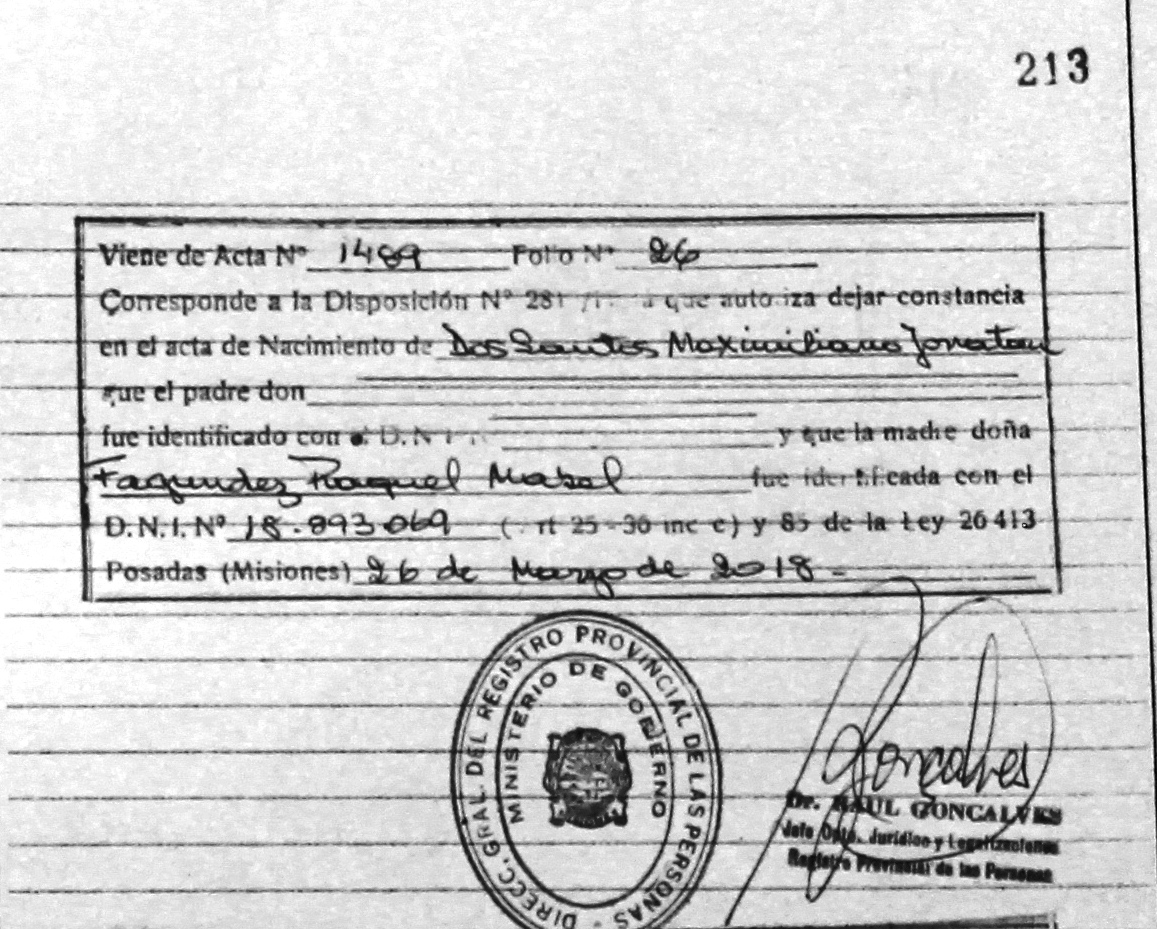 213
Viene de Acta Nº 1489 Folio Nº 26
Corresponde a la Disposición Nº 281 que autoriza dejar constancia
en el acta de Nacimiento de Dos Santos Maximiliano Jonatan
que el padre don
fue identificado con el D.N.I. y que la madre doña
Fagundez Raquel Mabel fue identificada con el
D.N.I. Nº 18.893.069 (Art 25-36 inc e) y 85 de la Ley 26413
Posadas (Misiones) 26 de Marzo de 2018 -
DIRECC. GRAL. DEL REGISTRO PROVINCIAL DE LAS PERSONAS -
MINISTERIO DE GOBIERNO
Goncalves
Dr. RAUL GONCALVES
Jefe Dpto. Jurídico y Legalizaciones
Registro Provincial de las Personas